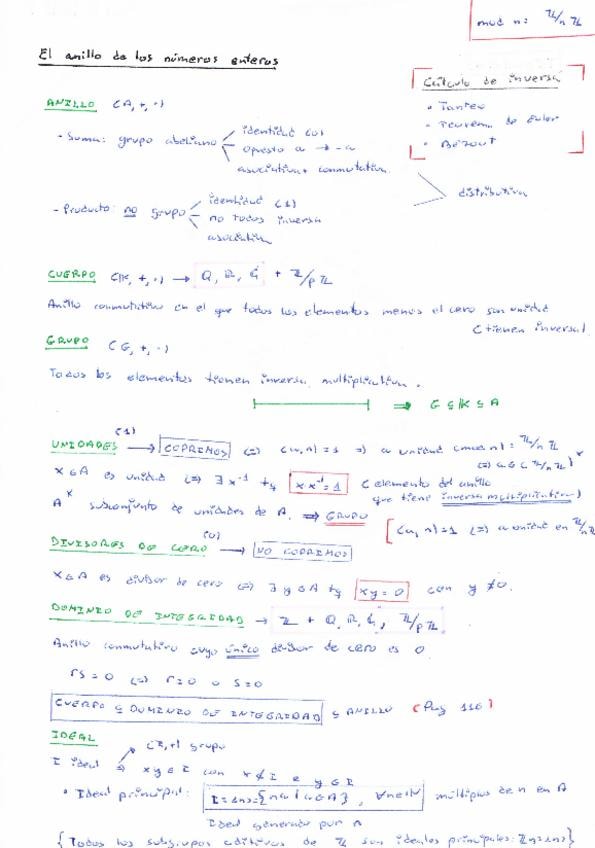 mod n: ℤ/nℤ
El anillo de los números enteros
Cálculo de inversa
• Tanteo
• Teorema de Euler
• Bézout
ANILLO (A, +, ·)
- Suma: grupo abeliano
identidad (0)
opuesto a → -a
asociativa + conmutativa
distributiva
- Producto: no grupo
identidad (1)
no todos inversa
asociativa
CUERPO (K, +, ·) → Q, R, C + ℤ/pℤ
Anillo conmutativo en el que todos los elementos menos el cero son unidad
(tienen inversa)
GRUPO (G, +, ·)
Todos los elementos tienen inversa multiplicativa.
⇒ G ⊆ K ⊆ A
UNIDADES (1) → COPRIMOS (=) (a,n) = 1 =) a unidad (mod n): ℤ/nℤ
(=) a ∈ (ℤ/nℤ)*
x ∈ A es unidad (=) ∃ x⁻¹ tq x·x⁻¹=1 (elemento del anillo
que tiene inversa multiplicativa)
A* subconjunto de unidades de A. ⇒ GRUPO
[(a,n)=1 (=) a unidad en ℤ/nℤ
DIVISORES DE CERO (0) → NO COPRIMOS
x ∈ A es divisor de cero (=) ∃ y ∈ A tq xy = 0 con y ≠ 0.
DOMINIO DE INTEGRIDAD → ℤ + Q, R, C, ℤ/pℤ
Anillo conmutativo cuyo único divisor de cero es 0
rs = 0 (=) r=0 o s=0
CUERPO ⊆ DOMINIO DE INTEGRIDAD ⊆ ANILLO (Pág 116)
IDEAL
I ideal
(I,+) grupo
xy ∈ I con x ∉ I e y ∈ I
• Ideal principal: I=<n>={na | a∈A}, ∀n∈ℕ múltiplos de n en A
Ideal generado por n
{Todos los subgrupos aditivos de ℤ son ideales principales: